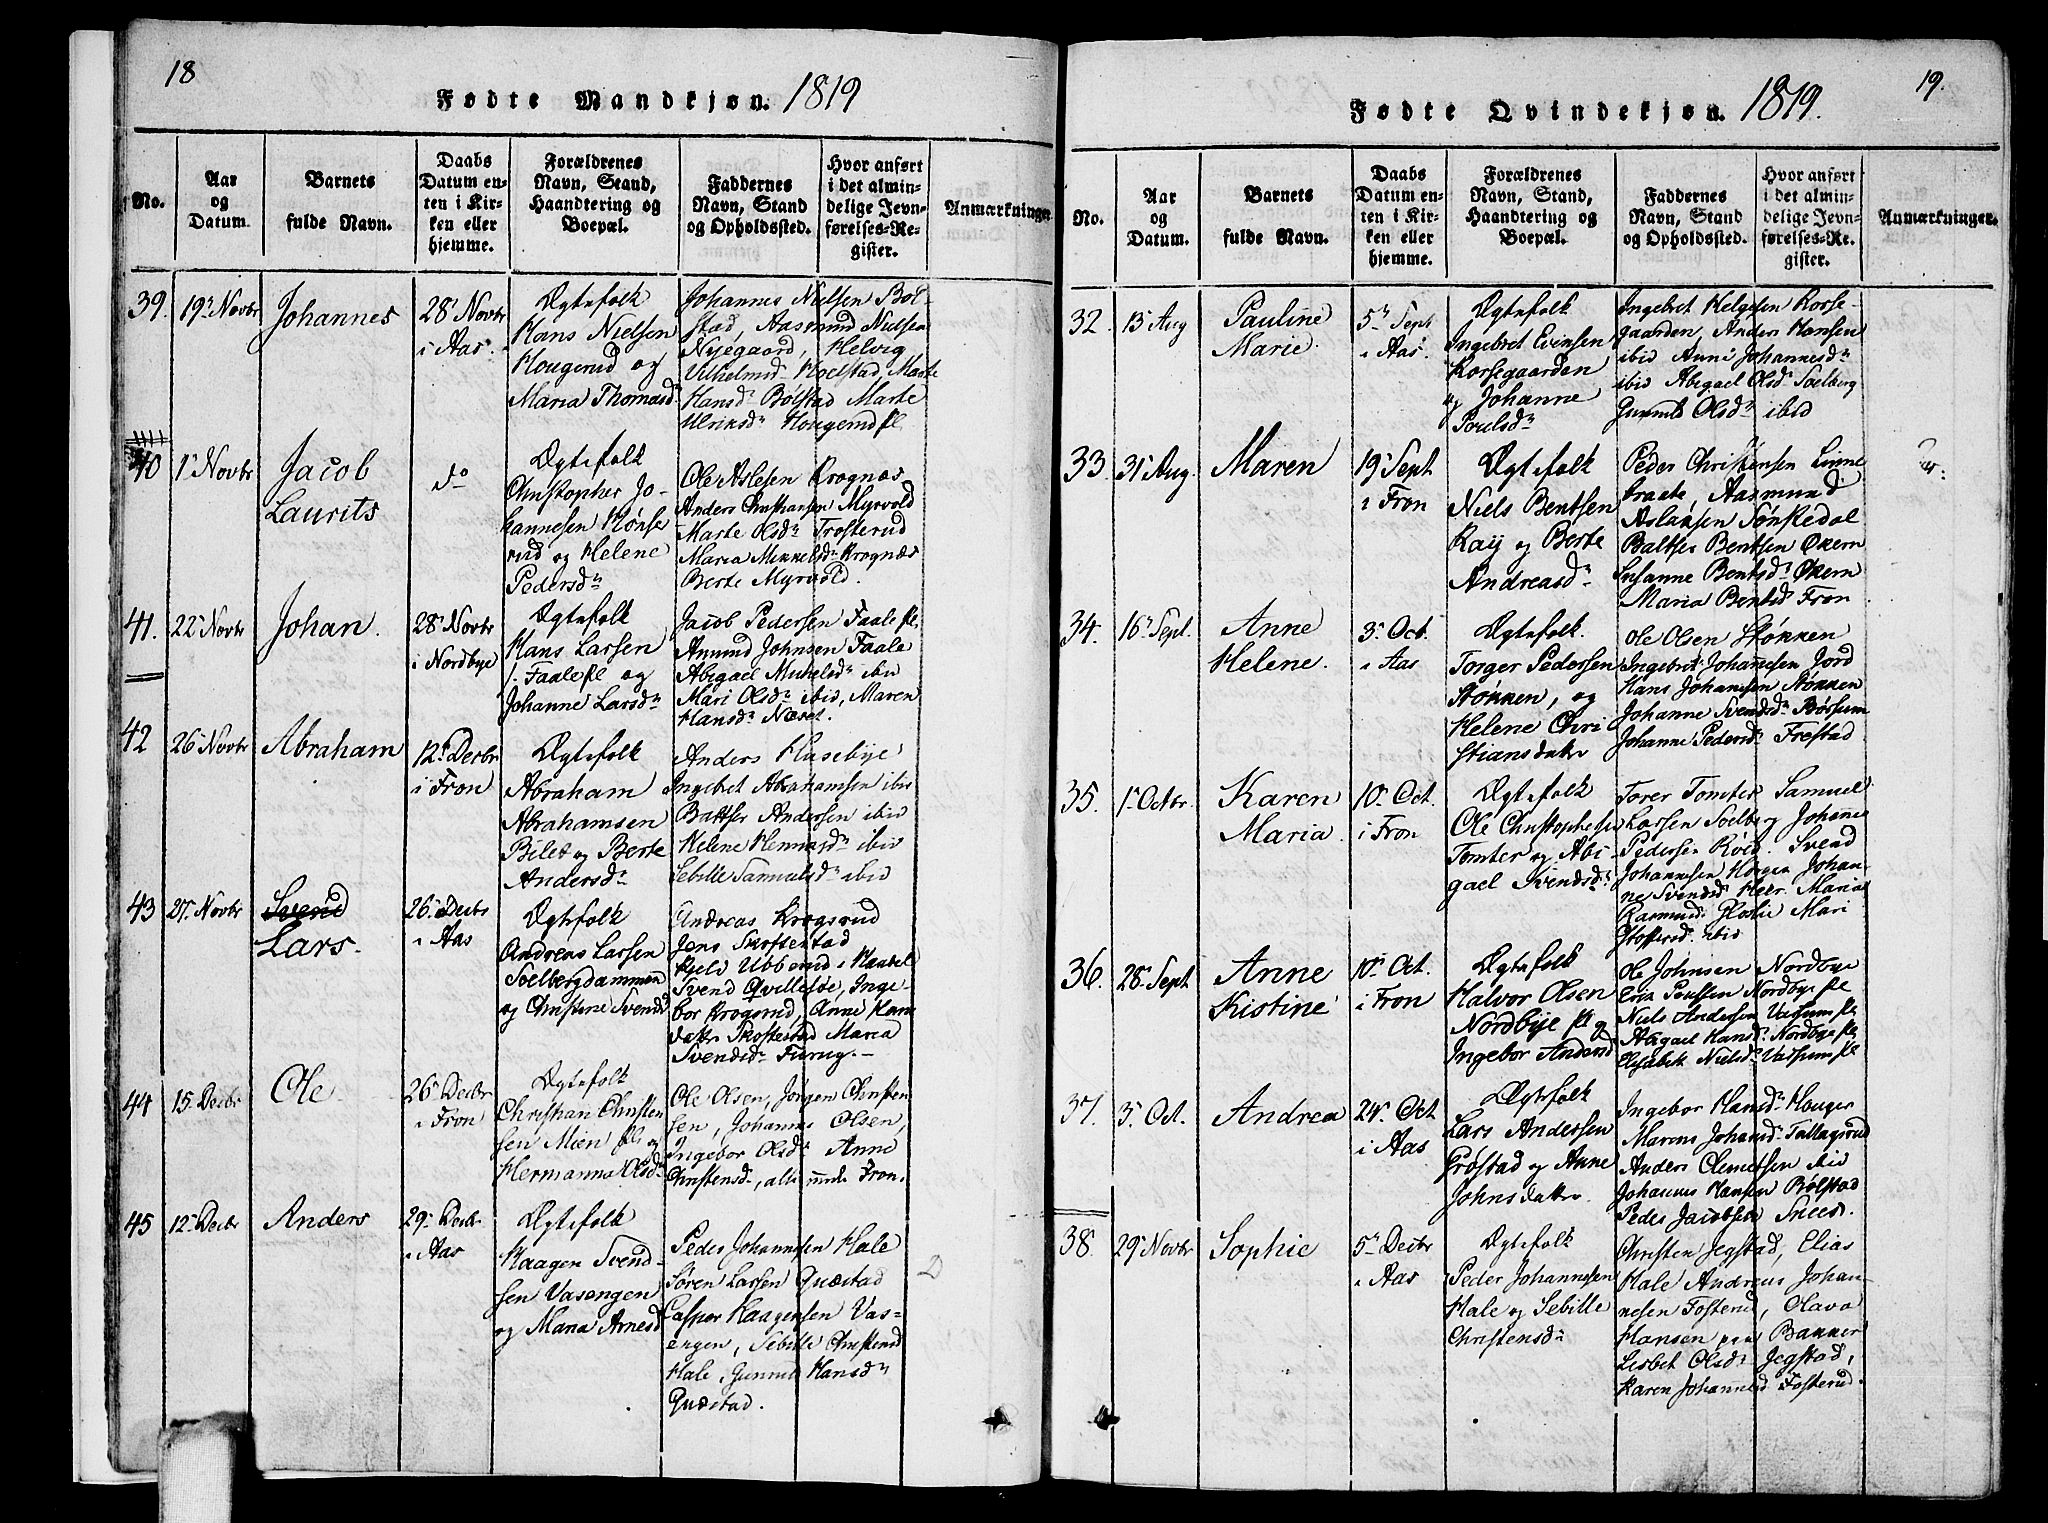 18
Fødte Mandkjøn. 1819
No.
Aar
og
Datum.
Barnets
fulde Navn.
Daabs
Datum en-
ten i Kir-
ken eller
hjemme.
Forældrenes
Navn, Stand,
Haandtering og
Boepæl.
Faddernes
Navn, Stand
og Opholdssted.
Hvor anført
i det almin-
delige Jevn-
førelses-Re-
gister.
Anmærkninger
39.
19 Novbr
Johannes
28 Novbr
i Aas.
Ægtefolk
Hans Nielsen
Hougerud og
Maria Thomasdr
Johannes Nielsen Bøl-
stad, Aasmund Nielsen
Nyegaard, Helvig
Vilhelmsd Hoelstad, Marte
Hansdr Bølstad Marte
Ulriksdr Hougerud pl.
40
1 Novbr
Jacob
Laurits
do
Ægtefolk
Christopher Jo-
hannesen Hønse
rud og Helene
Pedersdr
Ole Aslesen Krognæs
Anders Christiansen Myrvold
Marte Olsdr Trosterud
Maria Mikkelsdr Krognæs
Berte Myrvold.
41.
22 Novbr
Johan.
28 Novbr
i Nordbye
Ægtefolk
Hans Larsen
Faale pl og
Johanne Larsdr
Jacob Pedersen Faale pl.
Amund Johnsen Faale
Abigael Michelsdr ibid
Mari Olsdr ibid, Maren
Hansdr Næset.
42
26 Novbr
Abraham
12 Decbr
i Fron
Ægtefolk
Abraham
Abrahamsen
Bilet og Berte
Andersdr
Anders Husebye
Ingebret Abrahamsen ibid
Baltser Andersen ibid
Helene Henningsdr ibid
Sebille Samuelsdr ibid
43
27 Novbr
Svend
Lars.
26 Decbr
i Aas
Ægtefolk
Andreas Larsen
Solbergdammen
og Christine Svendsd
Andreas Krogsrud
Jens Skoftestad
Kield Ubberud
Svend Qvillesøe, Inge-
bor Krogsrud, Anne Hans
datter Skoftestad Maria
Svendsdr Furug.
44
15 Decbr
Ole
26 Decbr
i Fron
Ægtefolk
Christian Christen
sen Mien pl og
Hermanna Olsdr
Ole Olsen, Jørgen Christen
sen, Johannes Olsen,
Ingebor Olsdr Anne
Christensdr, alle unde Fron.
45
12 Decbr
Anders
29 Decbr
i Aas
Ægtefolk
Haagen Svend-
sen Vasengen
og Maria Arnesd
Peder Johannesen Hale
Søren Larsen Quæstad
Casper Haagensen Vas-
engen, Sebille Christensd
Hale, Gunnil Hansdr
Quæstad.
19.
Fødte Qvindekjøn. 1819.
No.
Aar
og
Datum.
Barnets
fulde Navn.
Daabs
Datum en-
ten i Kir-
ken eller
hjemme.
Forældrenes
Navn, Stand,
Haandtering og
Boepæl.
Faddernes
Navn, Stand
og Opholdssted.
Hvor anført
i det almin-
delige Jevn-
førelses-Re-
gister.
Anmærkninger.
32.
13 Aug
Pauline
Marie.
5 Sept
i Aas.
Ægtefolk
Ingebret Evensen
Korsegaarden
og Johanne
Poulsdr
Ingebret Helgesen Korse-
gaarden, Anders Hansen
ibid Anne Johannesdr
ibid Abigael Olsdr Solberg
Gunnild Olsdr ibid
33.
31 Aug.
Maren
19 Sept
i Fron
Ægtefolk
Niels Bentsen
Kaij og Berte
Andreasdr
Peder Christensen Linne
braate, Aasmund
Aslaksen Sønstedal
Baltser Bentsen Økern
Susanne Bentsdr Økern
Maria Bentsd Fron
34.
16 Sept.
Anne
Helene.
3 Oct.
i Aas
Ægtefolk.
Torger Pedersen
Støkken, og
Helene Chri
stiansdatter
Ole Olsen Støkken
Ingebret Johannesen Jord
Hans Johannesen Støkken
Johanne Svendsdr Børsum
Johanne Pedersd Frestad
35.
1 Octbr.
Karen
Maria.
10 Oct.
i Fron
Ægtefolk
Ole Christophersen
Tomter og Abi-
gael Svendsdr
Torer Tomter Samuel
Larsen Solberg Johanne
Pedersen Svend
Johannesen Horgen Johan-
ne Svendsd Heer. Maria
Rasmusd. Glosli Mari
ibid
36.
28 Sept
Anne
Kistine
10 Oct.
i Fron
Ægtefolk
Halvor Olsen
Nordbye pl og
Ingebor Andersd
Ole Johnsen Nordbye
Erik Poulsen Nordbye pl
Niels Andersen Vassum pl
Abigael Hansd. Nordbye pl.
Elisabet Nielsdr Vassum pl
37.
3 Oct.
Andrea
24 Oct
i Aas
Ægtefolk
Lars Andersen
Frøstad og Anne
Johnsdatter
Ingebor Hansdr Houger
Maren Johansd Tallagsrud
Anders Clemetsen ibid
Johannes Hansen Bølstad
Peder Jacobsen Sneis.
38.
29 Novbr
Sophie
5 Decbr
i Aas
Ægtefolk
Peder Johannesen
Hale og Sebille
Christensdr
Christen Jegstad, Elias
Hale Andreas Johan-
nesen Fosterud, Olava
Hansen paa Banner
Lisbet Olsdr Jegstad,
Karen Johannesd Fosterud.